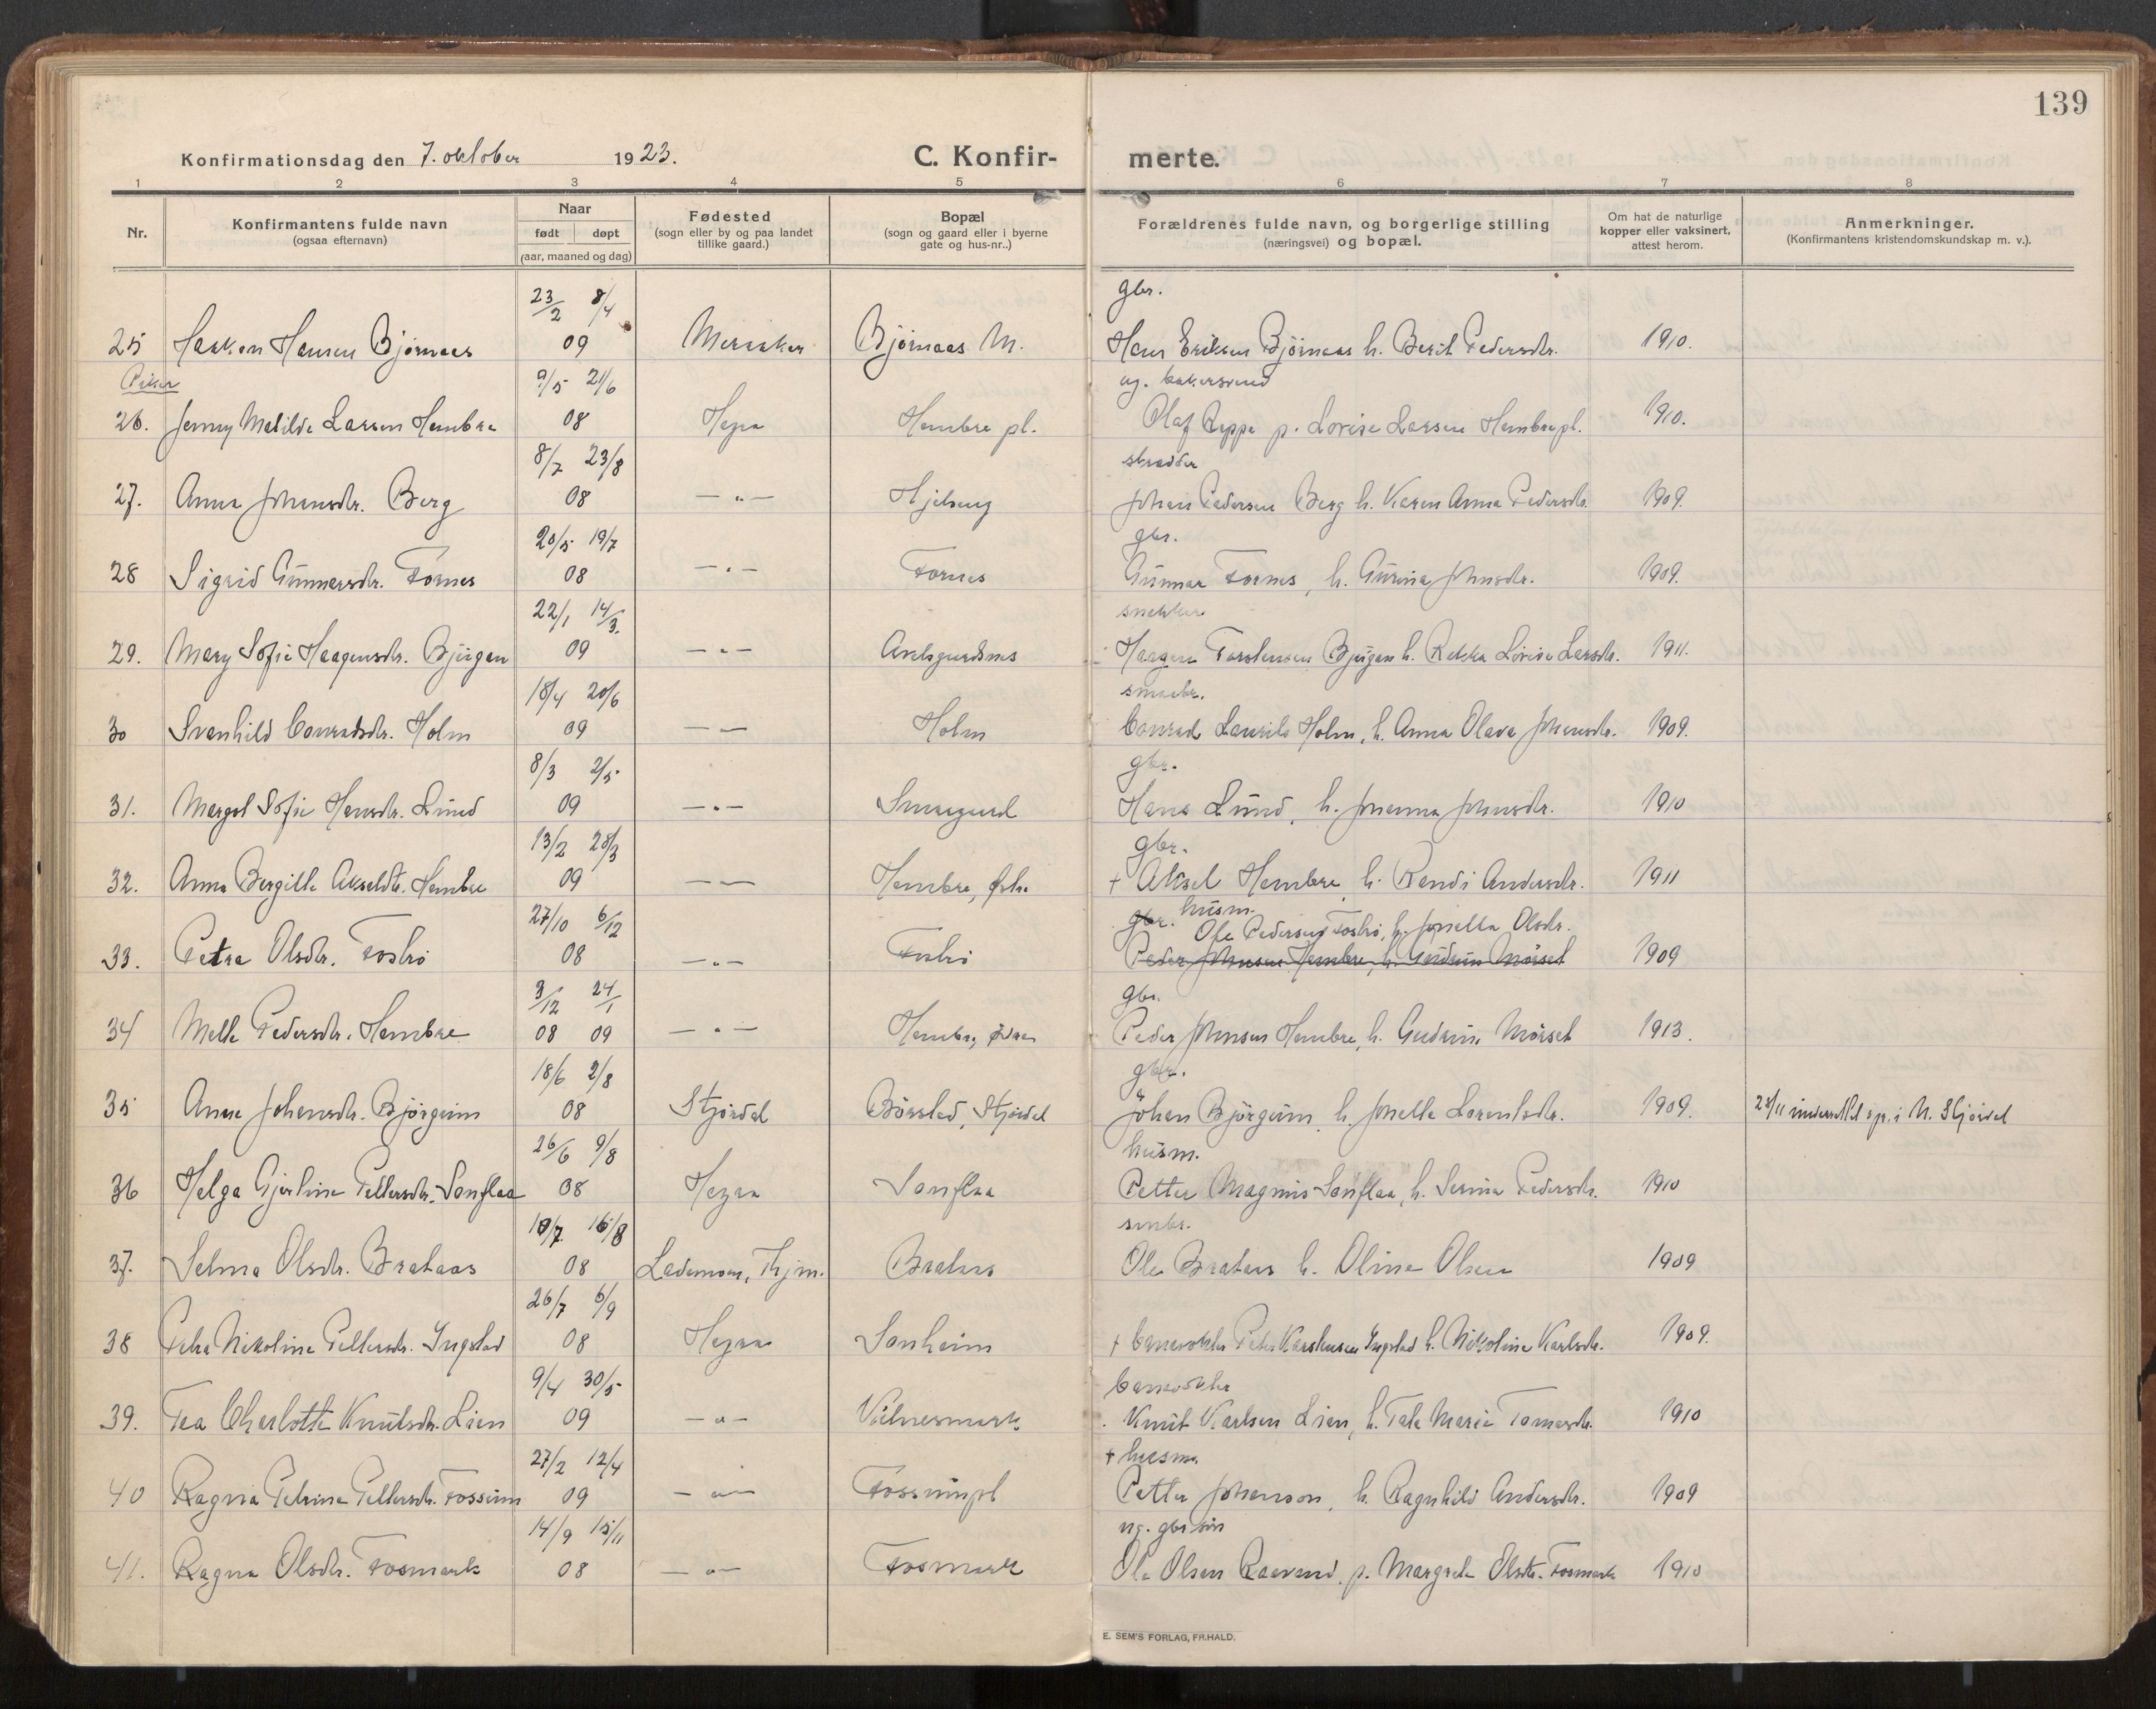 139
Konfirmationsdag den 7. oktober 1923. C. Konfir- merte.
1 2 3 4 5 6 7 8
Nr. Konfirmantens fulde navn (ogsaa efternavn) Naar født døpt (aar, maaned og dag) Fødested (sogn eller by og paa landet tillike gaard.) Bopæl (sogn og gaard eller i byerne gate og hus-nr..) Forældrenes fulde navn, og borgerlige stilling (næringsvei) og bopæl. Om hat de naturlige kopper eller vaksinert, attest herom. Anmerkninger. (Konfirmantens kristendomskundskap m. v.).
23/2 8/4 gbr.
25 Haakon Hansen Bjørnaas 09 Meraaker Bjørnaas M. Hans Eriksen Bjørnaas h. Berit Pedersdtr. 1910.
Piker 9/5 21/6 ug. bakersvend
26. Jenny Matilde Larsen Hembre 08 Hegra Hembre pl. Olaf Reppe p. Lovise Larsen Hembre pl. 1910.
8/7 23/8 skrædder
27. Anna Johansdtr. Berg 08 — " — Hjelseng Johan Pedersen Berg h. Karen Anna Pedersdtr. 1909.
20/5 19/7 gbr.
28 Sigrid Gunnarsdtr. Fornes 08 — " — Fornes Gunnar Fornes, h. Gurina Johnsdtr. 1909.
22/1 14/3. snekker
29. Mary Sofie Haagensdtr. Bjørgan 09 — " — Haagen Torstensen Bjørgan h. Rekka Lovise Larsdtr. 1911.
18/4 20/6 smaabr.
30 Svanhild Conradsdtr. Holm 09 — " — Holm Conrad Laurits Holm, h. Anna Olava Johansdtr. 1909.
8/3 2/5 gbr.
31. Margot Sofie Hansdtr. Lund 09 — " — Hans Lund, h. Johanna Johnsdtr. 1910
13/2 28/3 gbr.
32. Anna Bergitte Akseldtr. Hembre 09 — " — Hembre, østre + Aksel Hembre h. Randi Andersdtr. 1911
27/10 6/12 gbr. husm.
Ole Pedersen Fosbrø, h. Jonetta Olsdtr.
33. Petra Olsdtr. Fosbrø 08 — " — Fosbrø Peder Johnsen Hembre, h. Gudrun Mørset 1909
3/12 24/1 gbr.
34 Mette Pedersdtr. Hembre 08 09 — " — Hembre, øvre Peder Johnsen Hembre, h. Gudrun Mørset 1913.
18/6 2/8 gbr.
35 Anne Johansdtr. Bjørgum 08 Stjørdal Børstad, Stjørdal Johan Bjørgum h. Jonetta Lorentsdtr. 1909. i N. Stjørdal
26/6 9/8 husm.
36 Helga Gjertine Pettersdtr. Sonflaa 08 Hegra Sonflaa Petter Magnus Sonflaa, h. Serina Pedersdtr. 1910
10/7 16/8 smbr.
37. Selma Olsdtr. Brataas 08 Lademoen, Thjm. Brataas Ole Brataas h. Oline Olsen 1909
26/7 6/9
38 Petra Nikoline Pettersdtr. Ingstad 08 Hegra Sonheim + banevokter Peter Karstensen Ingstad h. Nikoline Karlsdtr. 1909.
9/4 30/5 banevokter
39. Tea Charlotte Knutsdtr. Lien 09 — " — Knut Karlsen Lien, h. Tale Marie Tomasdtr. 1910
27/2 12/4 + husm.
40 Ragna Petrine Pettersdtr. Fossum 09 — " — Fossumpl Petter Johanson, h. Ragnhild Andersdtr. 1909
14/9 15/11 ug. gbrsøn
41. Ragna Olsdtr. Fosmark 08 — " — Fosmark Ole Olsen p. Margrete Olsdtr. Fosmark 1910
E. SEM'S FORLAG, FR.HALD.